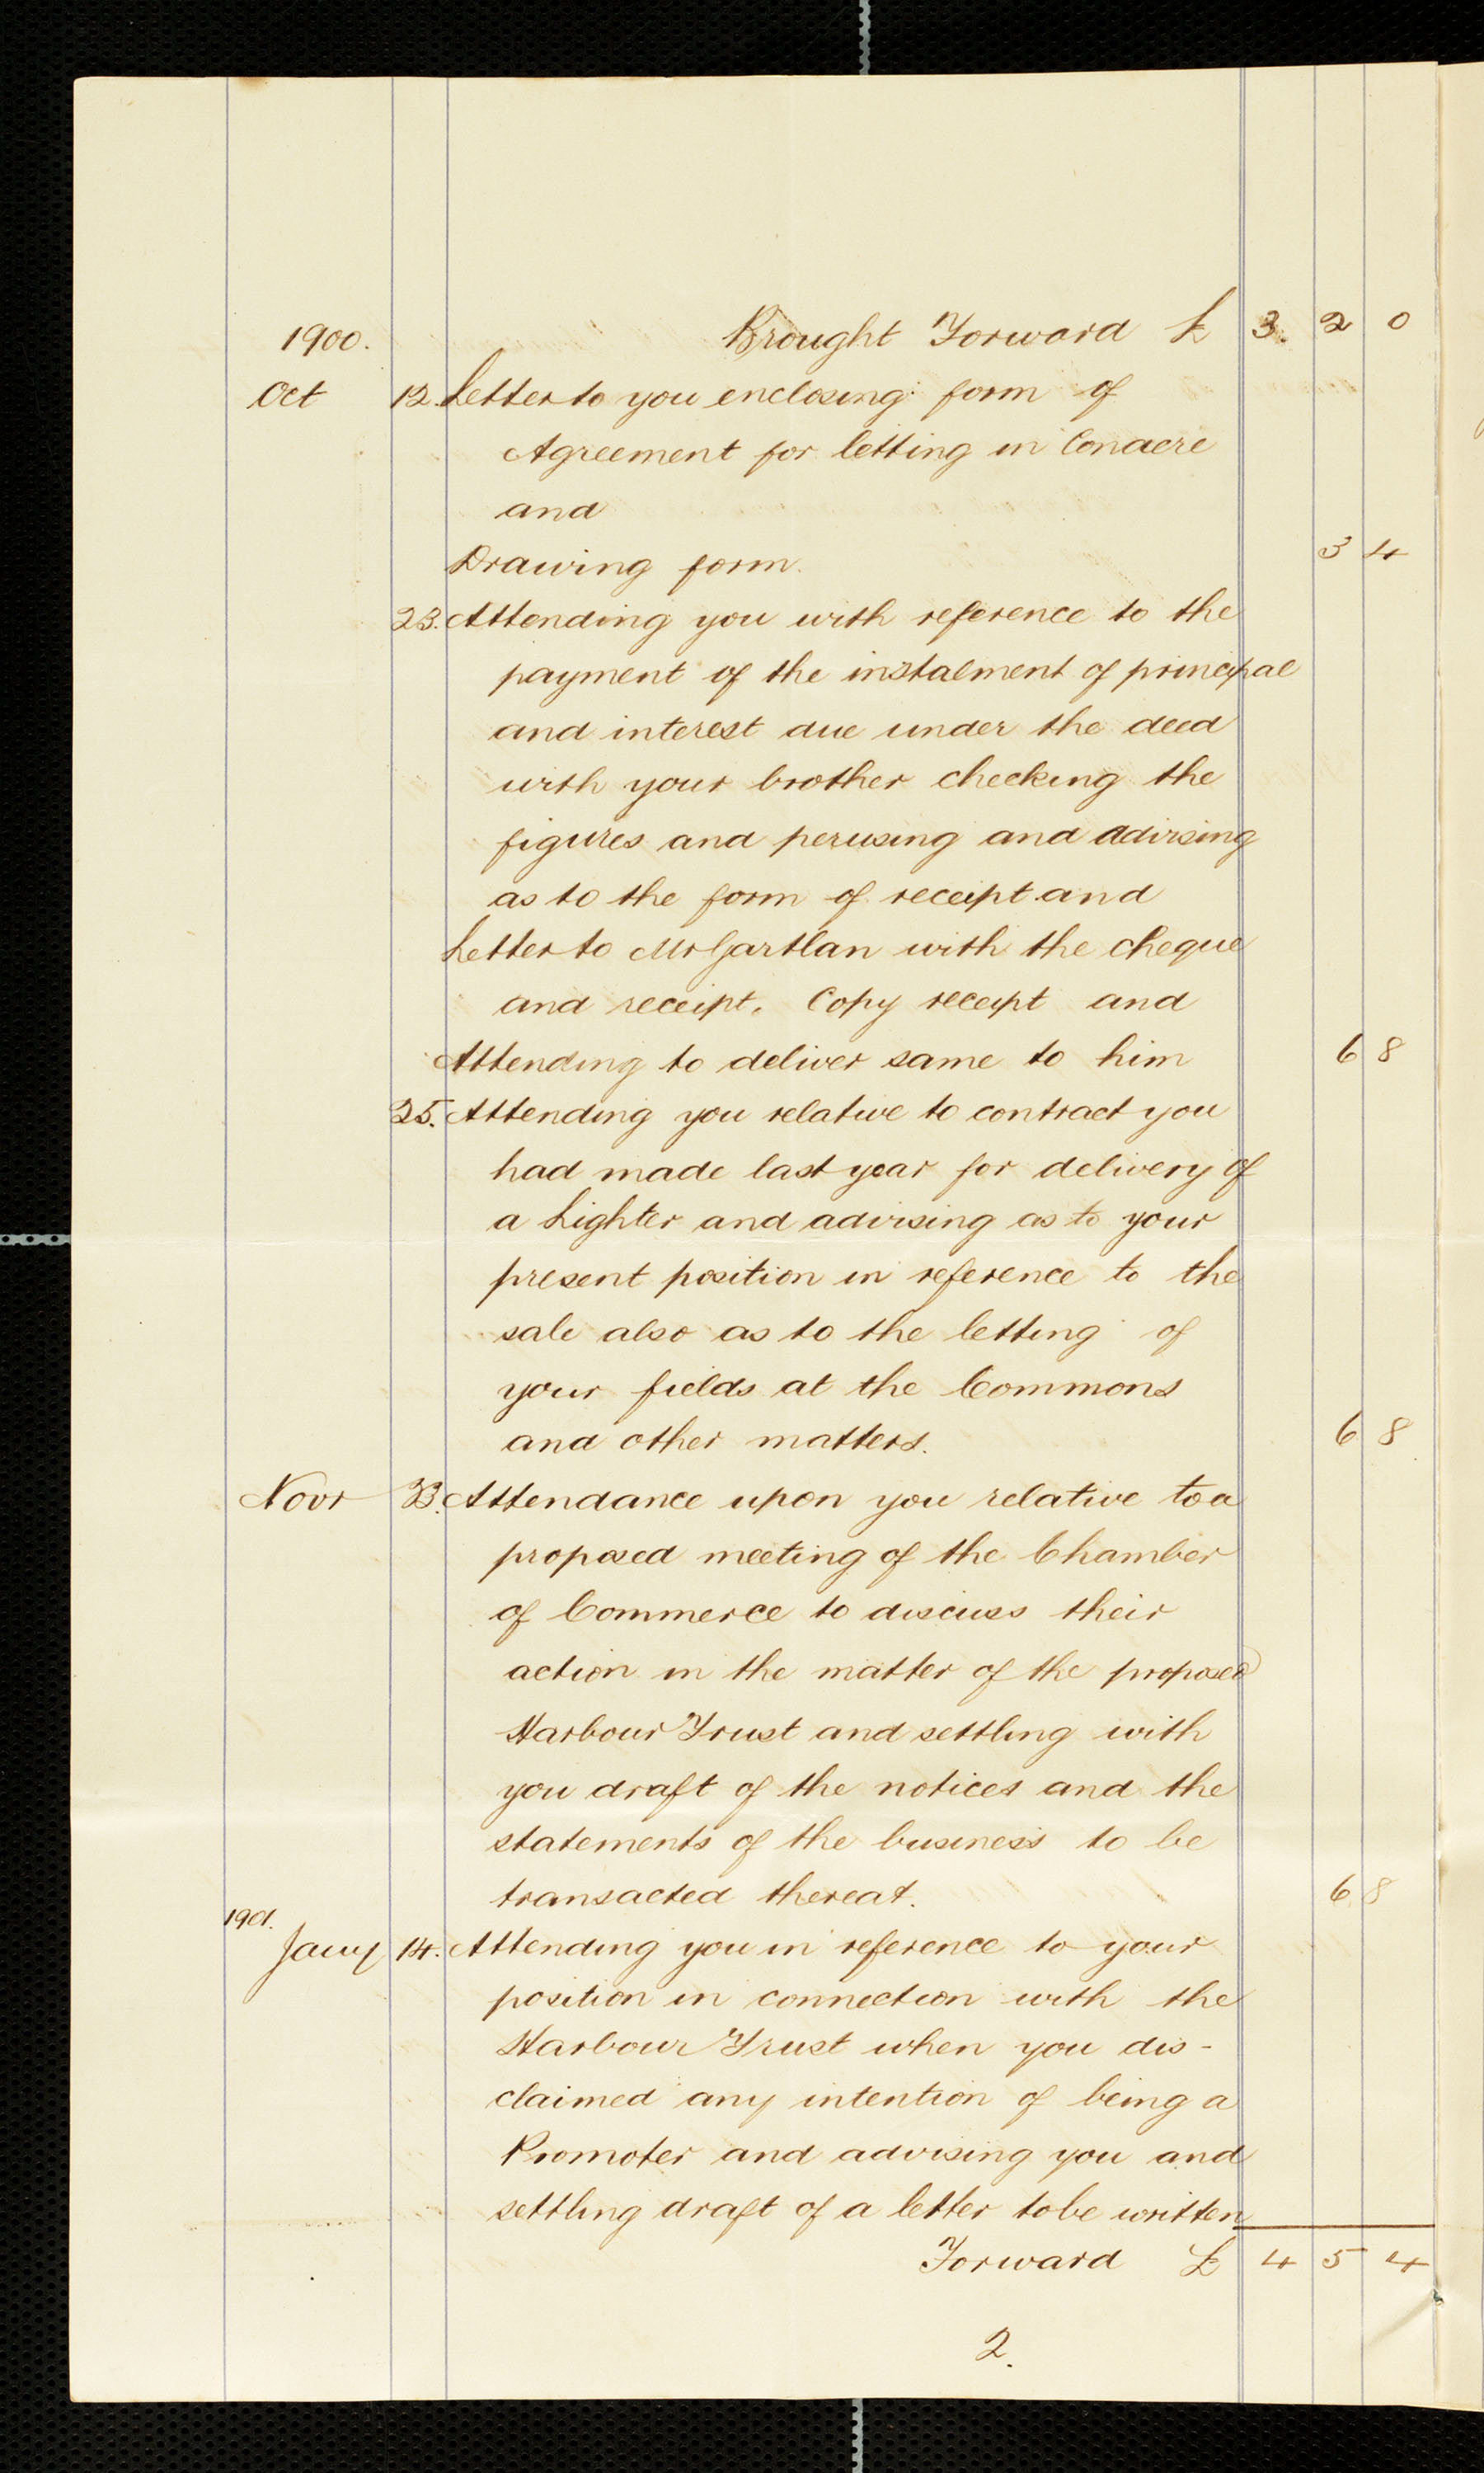 1900. Brought Forward £ 3. 2 0
Oct 12. Letter to you enclosing form of
Agreement for letting in Conacre
and
Drawing form. 3 4
23. Attending you with reference to the
payment of the instalment of principal
and interest due under the deed
with your brother checking the
figures and perusing and advising
as to the form of receipt and
Letter to Mr Gartlan with the cheque
and receipt. Copy receipt and
Attending to deliver same to him 6 8
25. Attending you relative to contract you
had made last year for delivery of
a Lighter and advising as to your
present position in reference to the
sale also as to the letting of
your fields at the Commons
and other matters. 6 8
Novr Attendance upon you relative to a
proposed meeting of the Chamber
of Commerce to discuss their
action in the matter of the proposed
Harbour Trust and settling with
you draft of the notices and the
statements of the business to be
transacted thereat. 6 8
1901.
Jany 14. Attending you in reference to your
position in connection with the
Harbour Trust when you dis-
claimed any intention of being a
Promoter and advising you and
settling draft of a letter to be written
Forward £ 4 5 4
2.